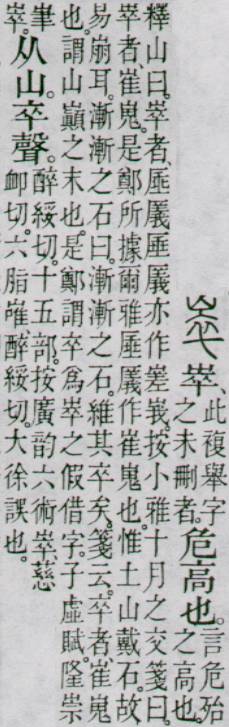 崒、此複舉字
之未刪者。危高也。言危殆
之高也。
釋山曰。崒者、厜㕒。厜㕒亦作嵳峩。按小雅十月之交箋曰。
崒者、崔嵬。是鄭所據爾雅厜㕒作崔嵬也。惟土山戴石。故
易崩耳。漸漸之石曰。漸漸之石。維其卒矣。箋云。卒者崔嵬
也。謂山巓之末也。是鄭謂卒爲崒之假借字。子虛賦。隆崇
嵂
崒。从山。卒聲。醉綏切。十五部。按廣韵六術崒慈
卹切。六脂嶉醉綏切。大徐誤也。